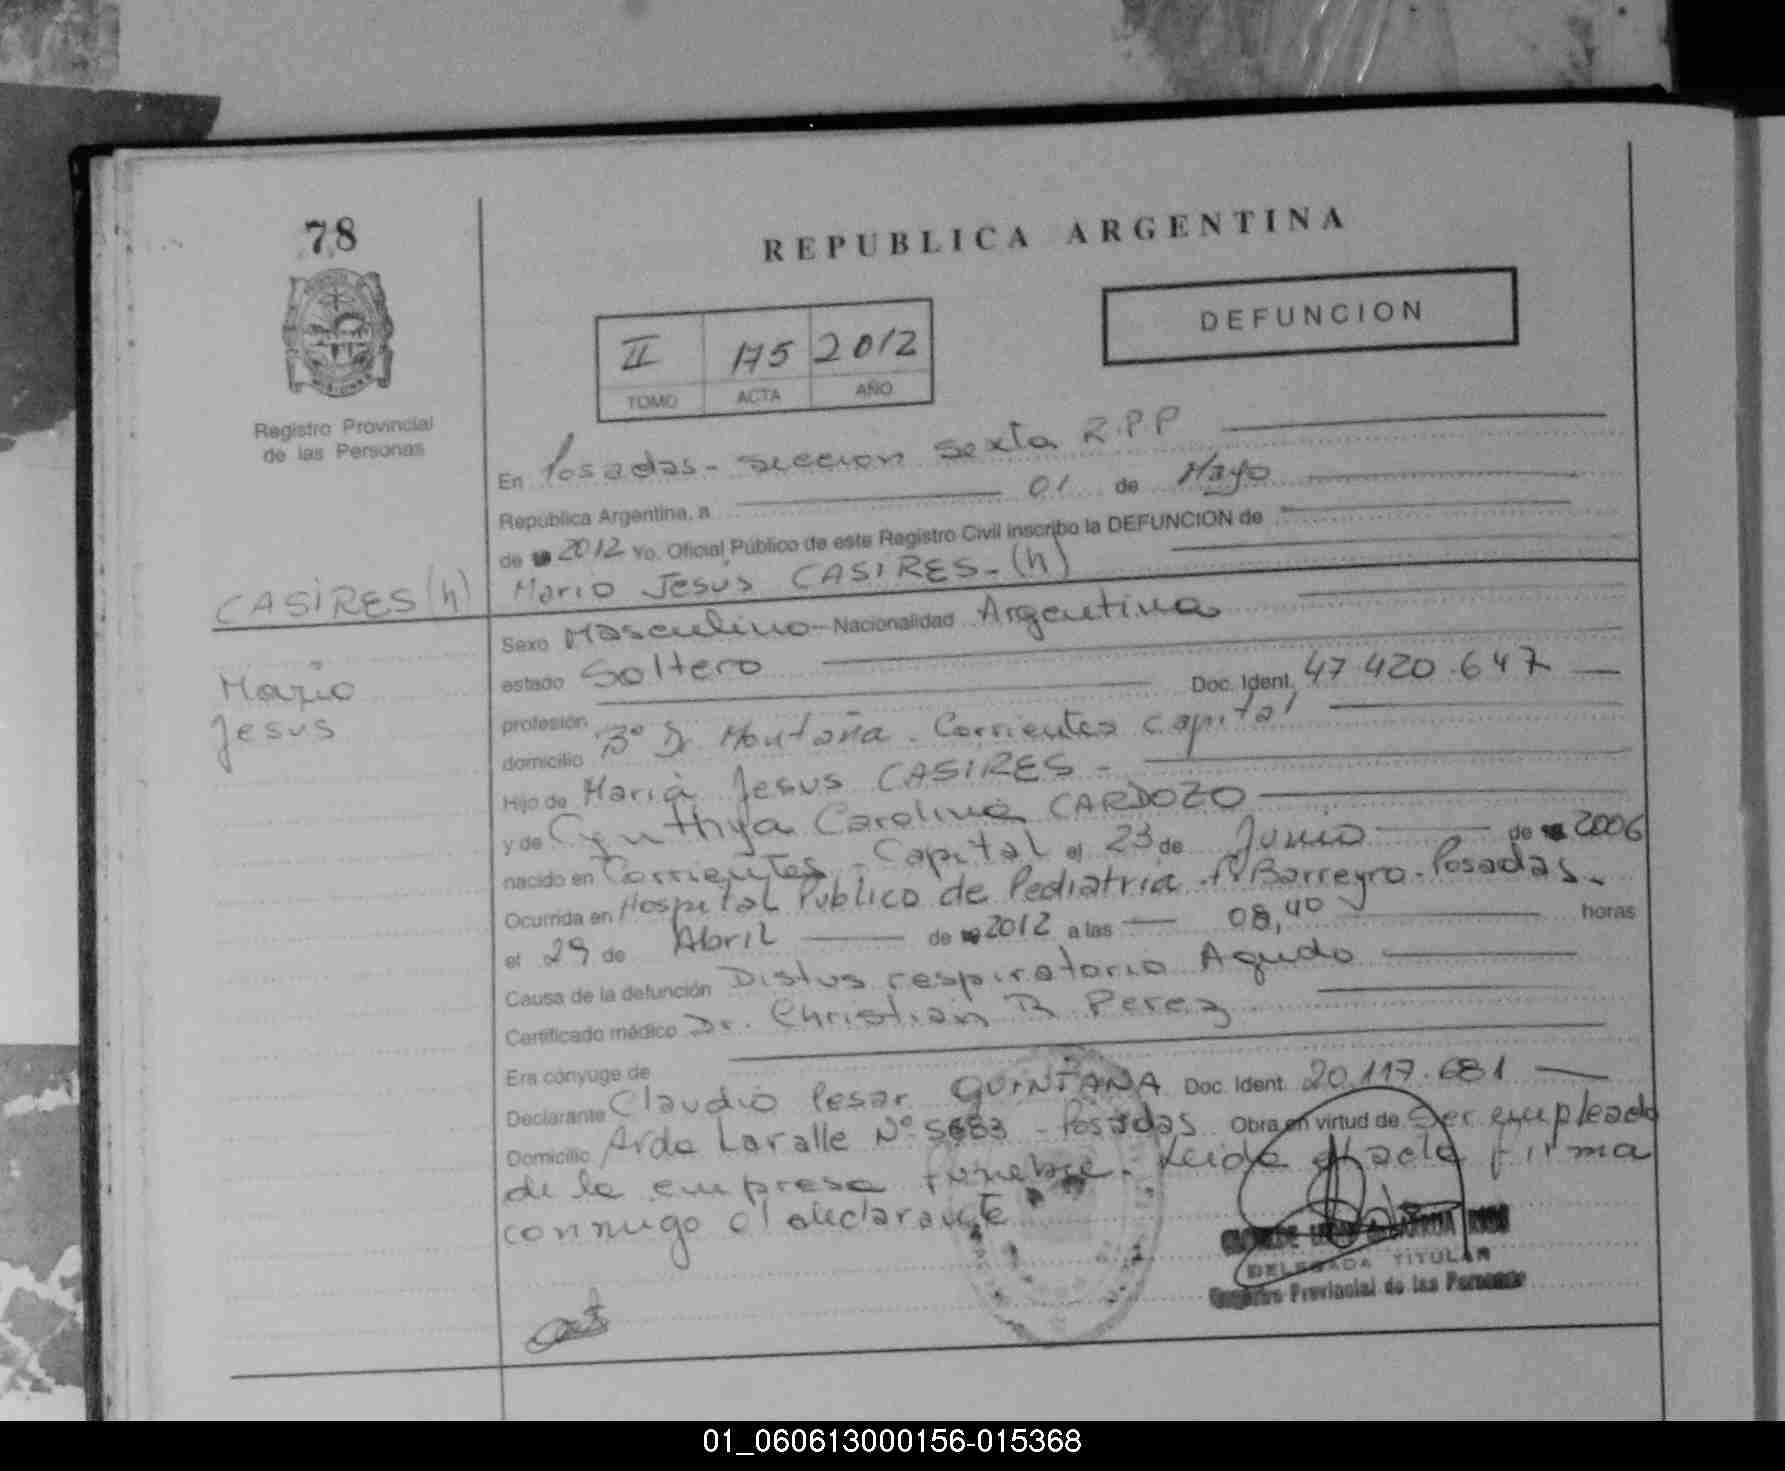 78
Registro Provincial
de las Personas
REPUBLICA ARGENTINA
II 175 2012
TOMO ACTA AÑO
DEFUNCION
En Posadas - seccion sexta R.P.P
República Argentina, a 01 de Mayo
de 2012 Yo, Oficial Público de este Registro Civil inscribo la DEFUNCION de
CASIRES (h)
Mario Jesús CASIRES - (h)
Mario
Jesus
Sexo Masculino - Nacionalidad Argentina
estado Soltero
profesión Doc. Ident. 47 420.647
domicilio Bº Dr Montaña - Corrientes capital
Hijo de Maria Jesus CASIRES -
y de Cynthya Carolina CARDOZO
nacido en Corrientes - Capital el 23 de Junio de 2006
Ocurrida en Hospital Publico de Pediatria F. Barreyro - Posadas -
el 29 de Abril de 2012 a las 08,40 horas
Causa de la defunción Distus respiratorio Agudo
Certificado médico Dr. Christian R Perez
Era cónyuge de
Declarante Claudio Cesar QUINTANA Doc. Ident. 20.117.681
Domicilio Avda Lavalle Nº 5683 - Posadas Obra en virtud de Ser empleado
de la empresa funebre - Leida el acta firma
conmigo el declarante
DELEGADA TITULAR
Registro Provincial de las Personas
01_060613000156-015368